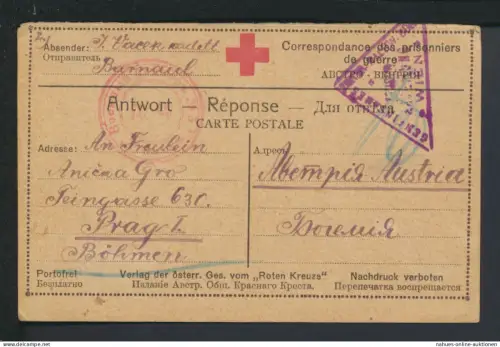 Absender: J. Vacek kadett
Отправитель Barnaul
Correspondance des prisonniers
de guerre
АВСТРО-ВЕНГРІЯ
WIEN
Antwort — Réponse — Для отвѣта
CARTE POSTALE
Adresse: An Fräulein
Anička Gro
Teingasse 630.
Prag I.
Böhmen
Адресъ:
Австрія Austria
Богемія
Portofrei
Безплатно
Verlag der österr. Ges. vom „Roten Kreuze“
Изданіе Австр. Общ. Краснаго Креста.
Nachdruck verboten
Перепечатка воспрещается
www.ansichtskarten-auktionen.de